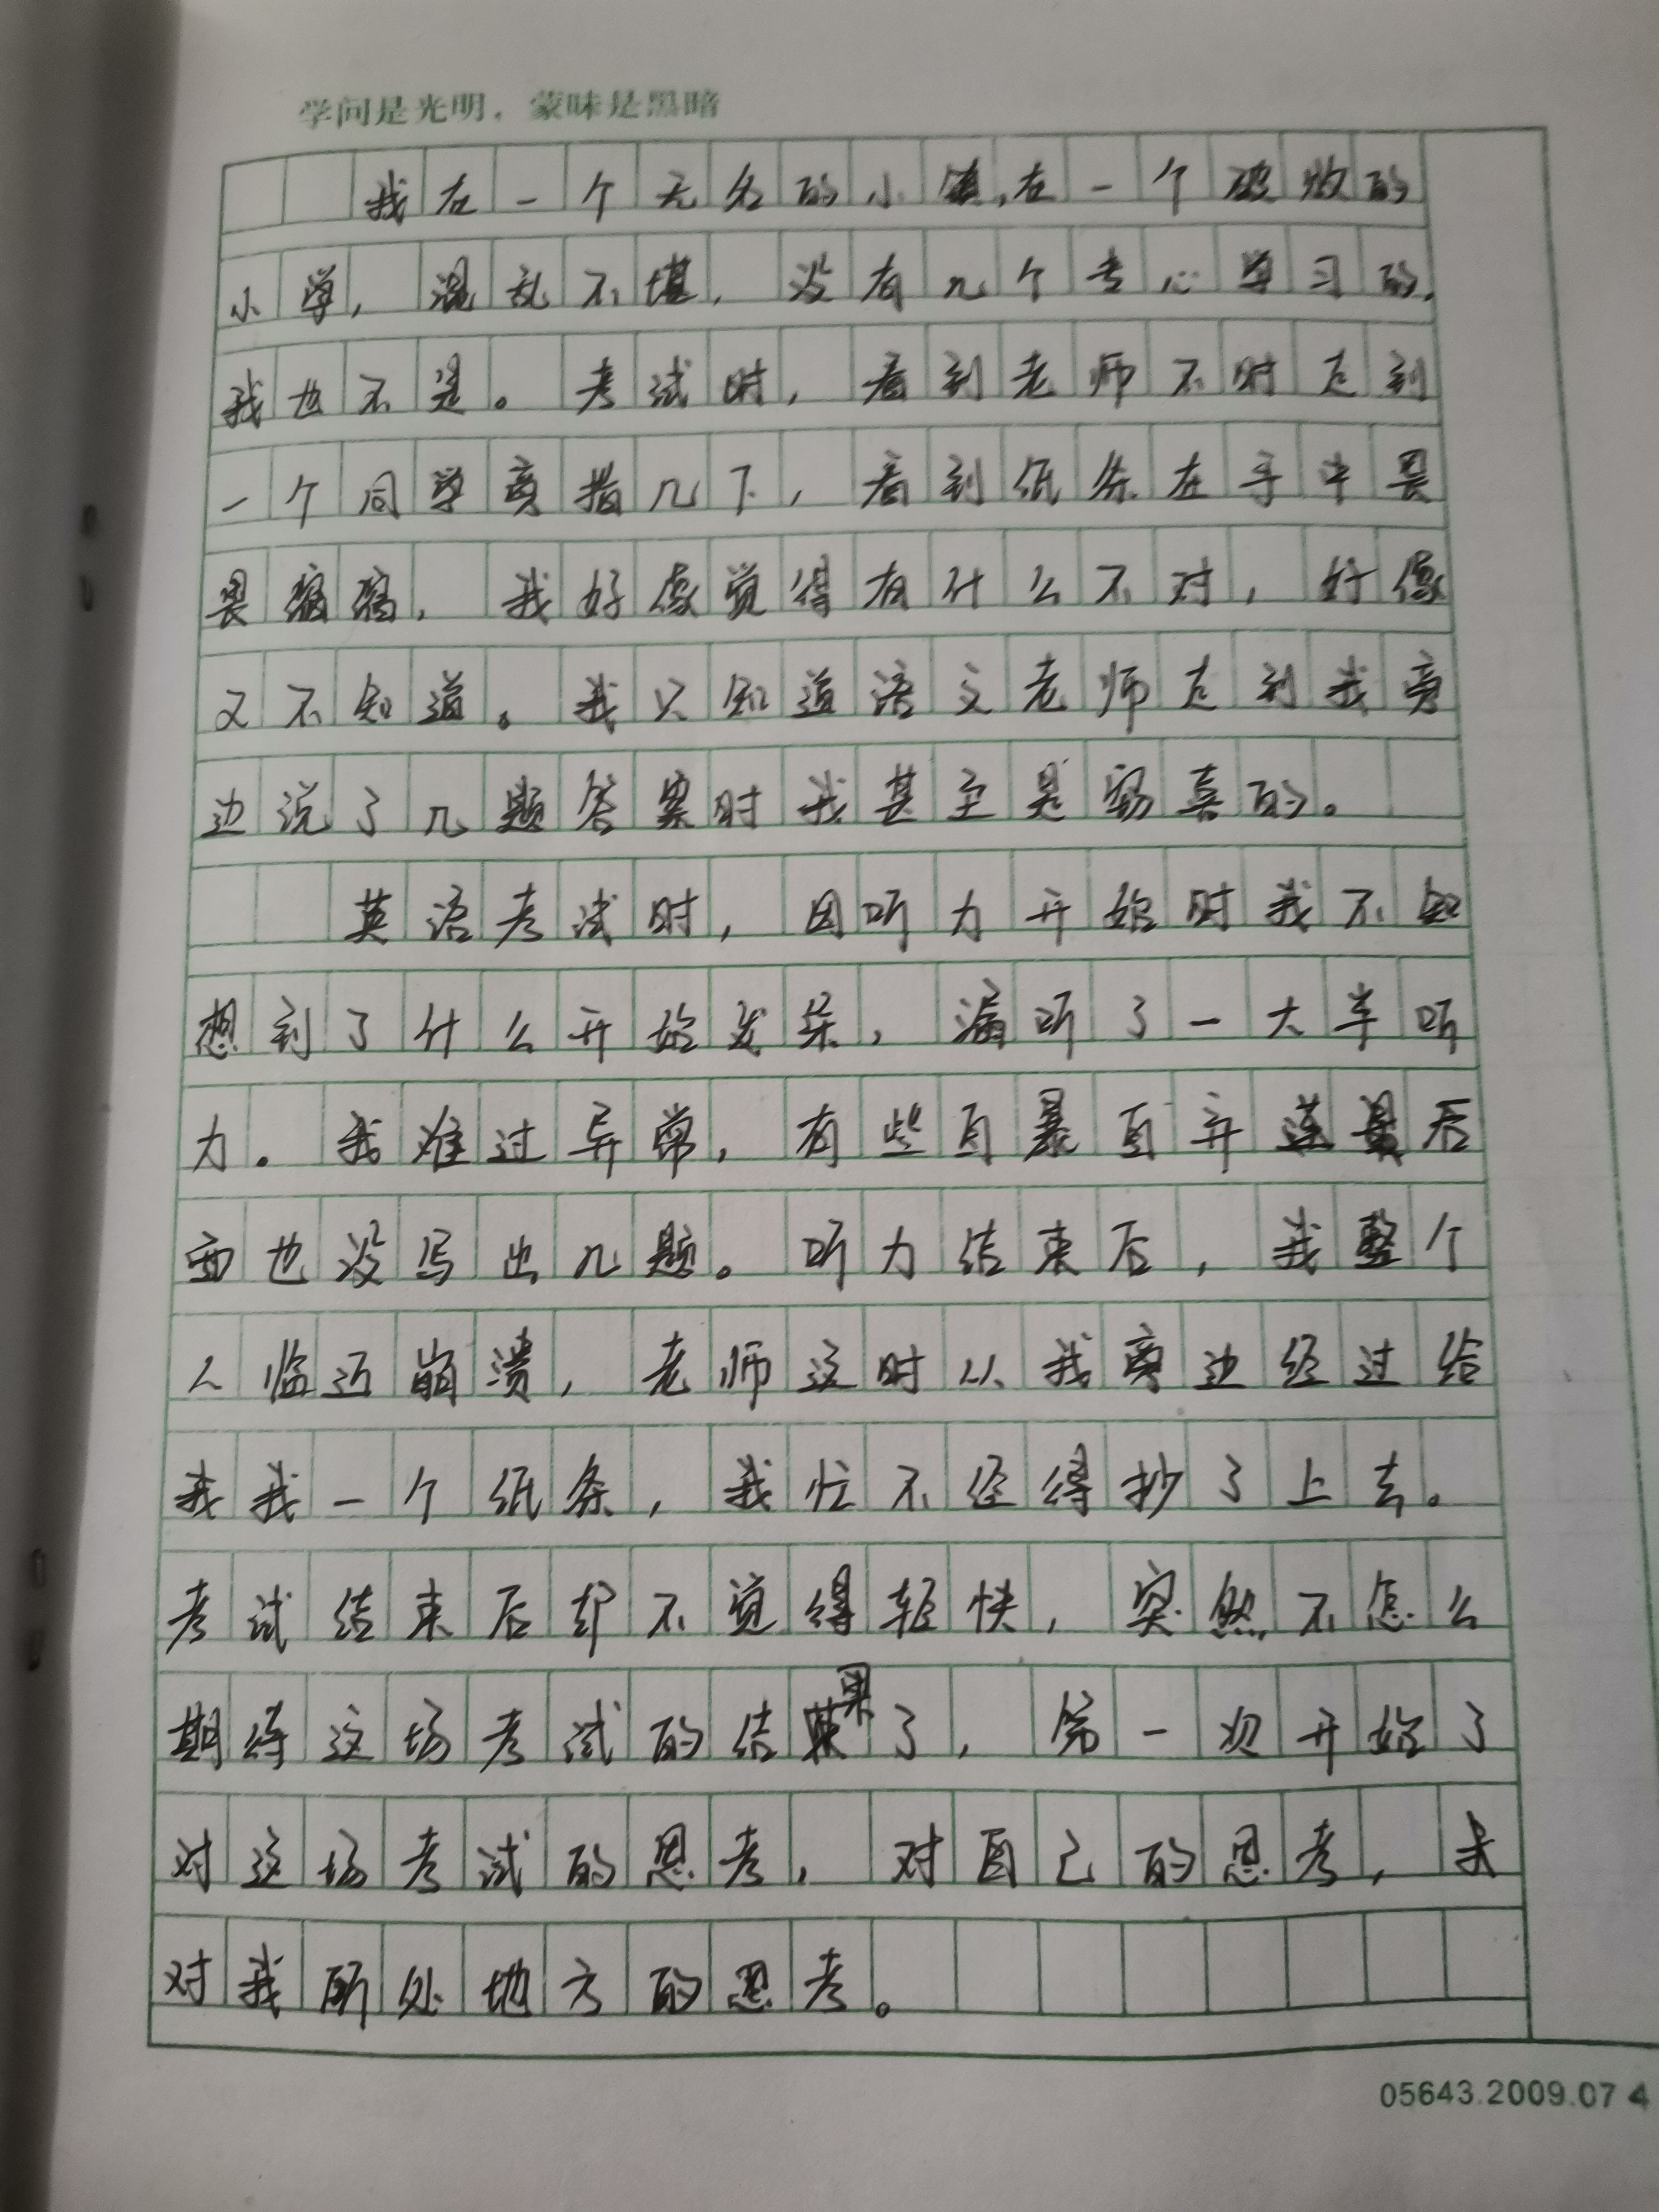 学问是光明，蒙昧是黑暗
我在一个无名的小镇,在一个破败的
小学，混乱不堪，没有几个专心学习的，
我也不是。考试时，看到老师不时走到
一个同学旁指几下，看到纸条在手中畏
畏缩缩，我好像觉得有什么不对，好像
又不知道。我只知道语文老师走到我旁
边说了几题答案时我甚至是窃喜的。
英语考试时，因听力开始时我不知
想到了什么开始发呆，漏听了一大半听
力。我难过异常，有些自暴自弃连最后
面也没写出几题。听力结束后，我整个
人临近崩溃，老师这时从我旁边经过给
我我一个纸条，我忙不迭得抄了上去。
考试结束后却不觉得轻快，突然不怎么
期待这场考试的结果了，第一次开始了
对这场考试的思考，对自己的思考，未
对我所处地方的思考。
05643.2009.07 4